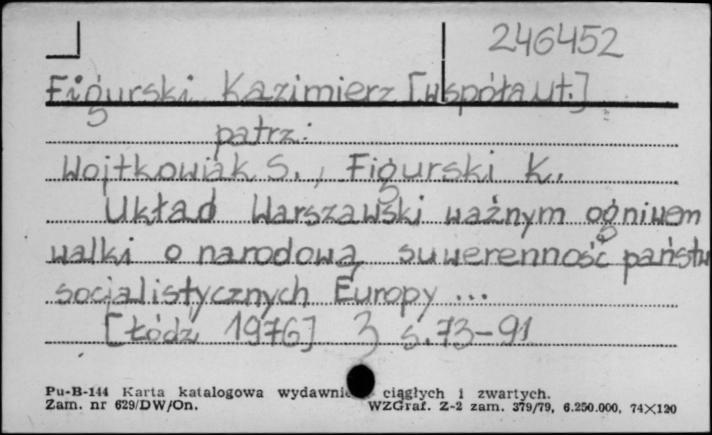 246452
Figurski Kazimierz [współaut.]
patrz:
Wojtkowiak S., Figurski K.
Układ Warszawski ważnym ogniwem
walki o narodową suwerenność państw
socjalistycznych Europy ...
[Łódź 1976] 3 s. 73-91
Pu-B-144 Karta katalogowa wydawnic ciągłych i zwartych.
Zam. nr 629/DW/On. WZGraf. Z-2 zam. 379/79, 6.250.000, 74×120